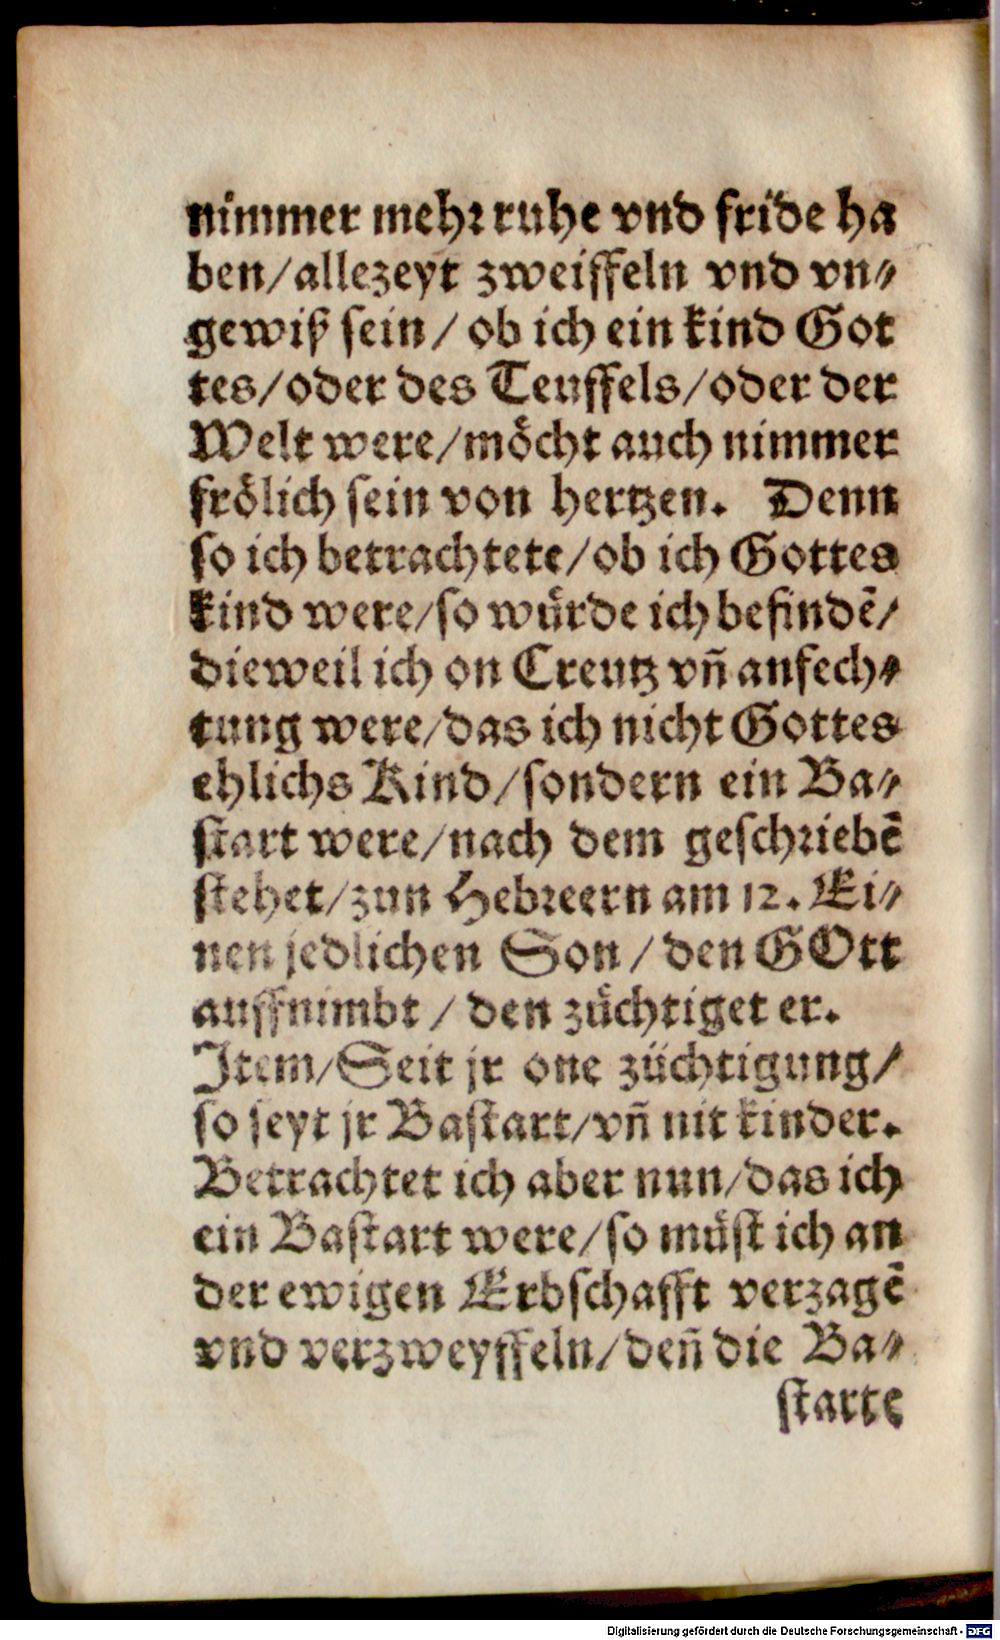 nimmer mehr ruhe vnd fride ha
ben/allezeyt zweiffeln vnd vn⸗
gewiß sein/ ob ich ein kind Got
tes/oder des Teuffels/oder der
Welt were/möcht auch nimmer
frölich sein von hertzen. Denn
so ich betrachtete/ob ich Gottes
kind were/so würde ich befindē/
dieweil ich on Creutz vñ anfech⸗
tung were/das ich nicht Gottes
ehlichs Kind/sondern ein Ba⸗
start were/nach dem geschriebē
stehet/zun Hebreern am 12. Ei⸗
nen jedlichen Son/ den GOtt
auffnimbt / den züchtiget er.
Item/Seit jr one züchtigung/
so seyt jr Bastart/vñ nit kinder.
Betrachtet ich aber nun/das ich
ein Bastart were/so müst ich an
der ewigen Erbschafft verzagē
vnd verzweyffeln/deñ die Ba⸗
starte
Digitalisierung gefördert durch die Deutsche Forschungsgemeinschaft - DFG